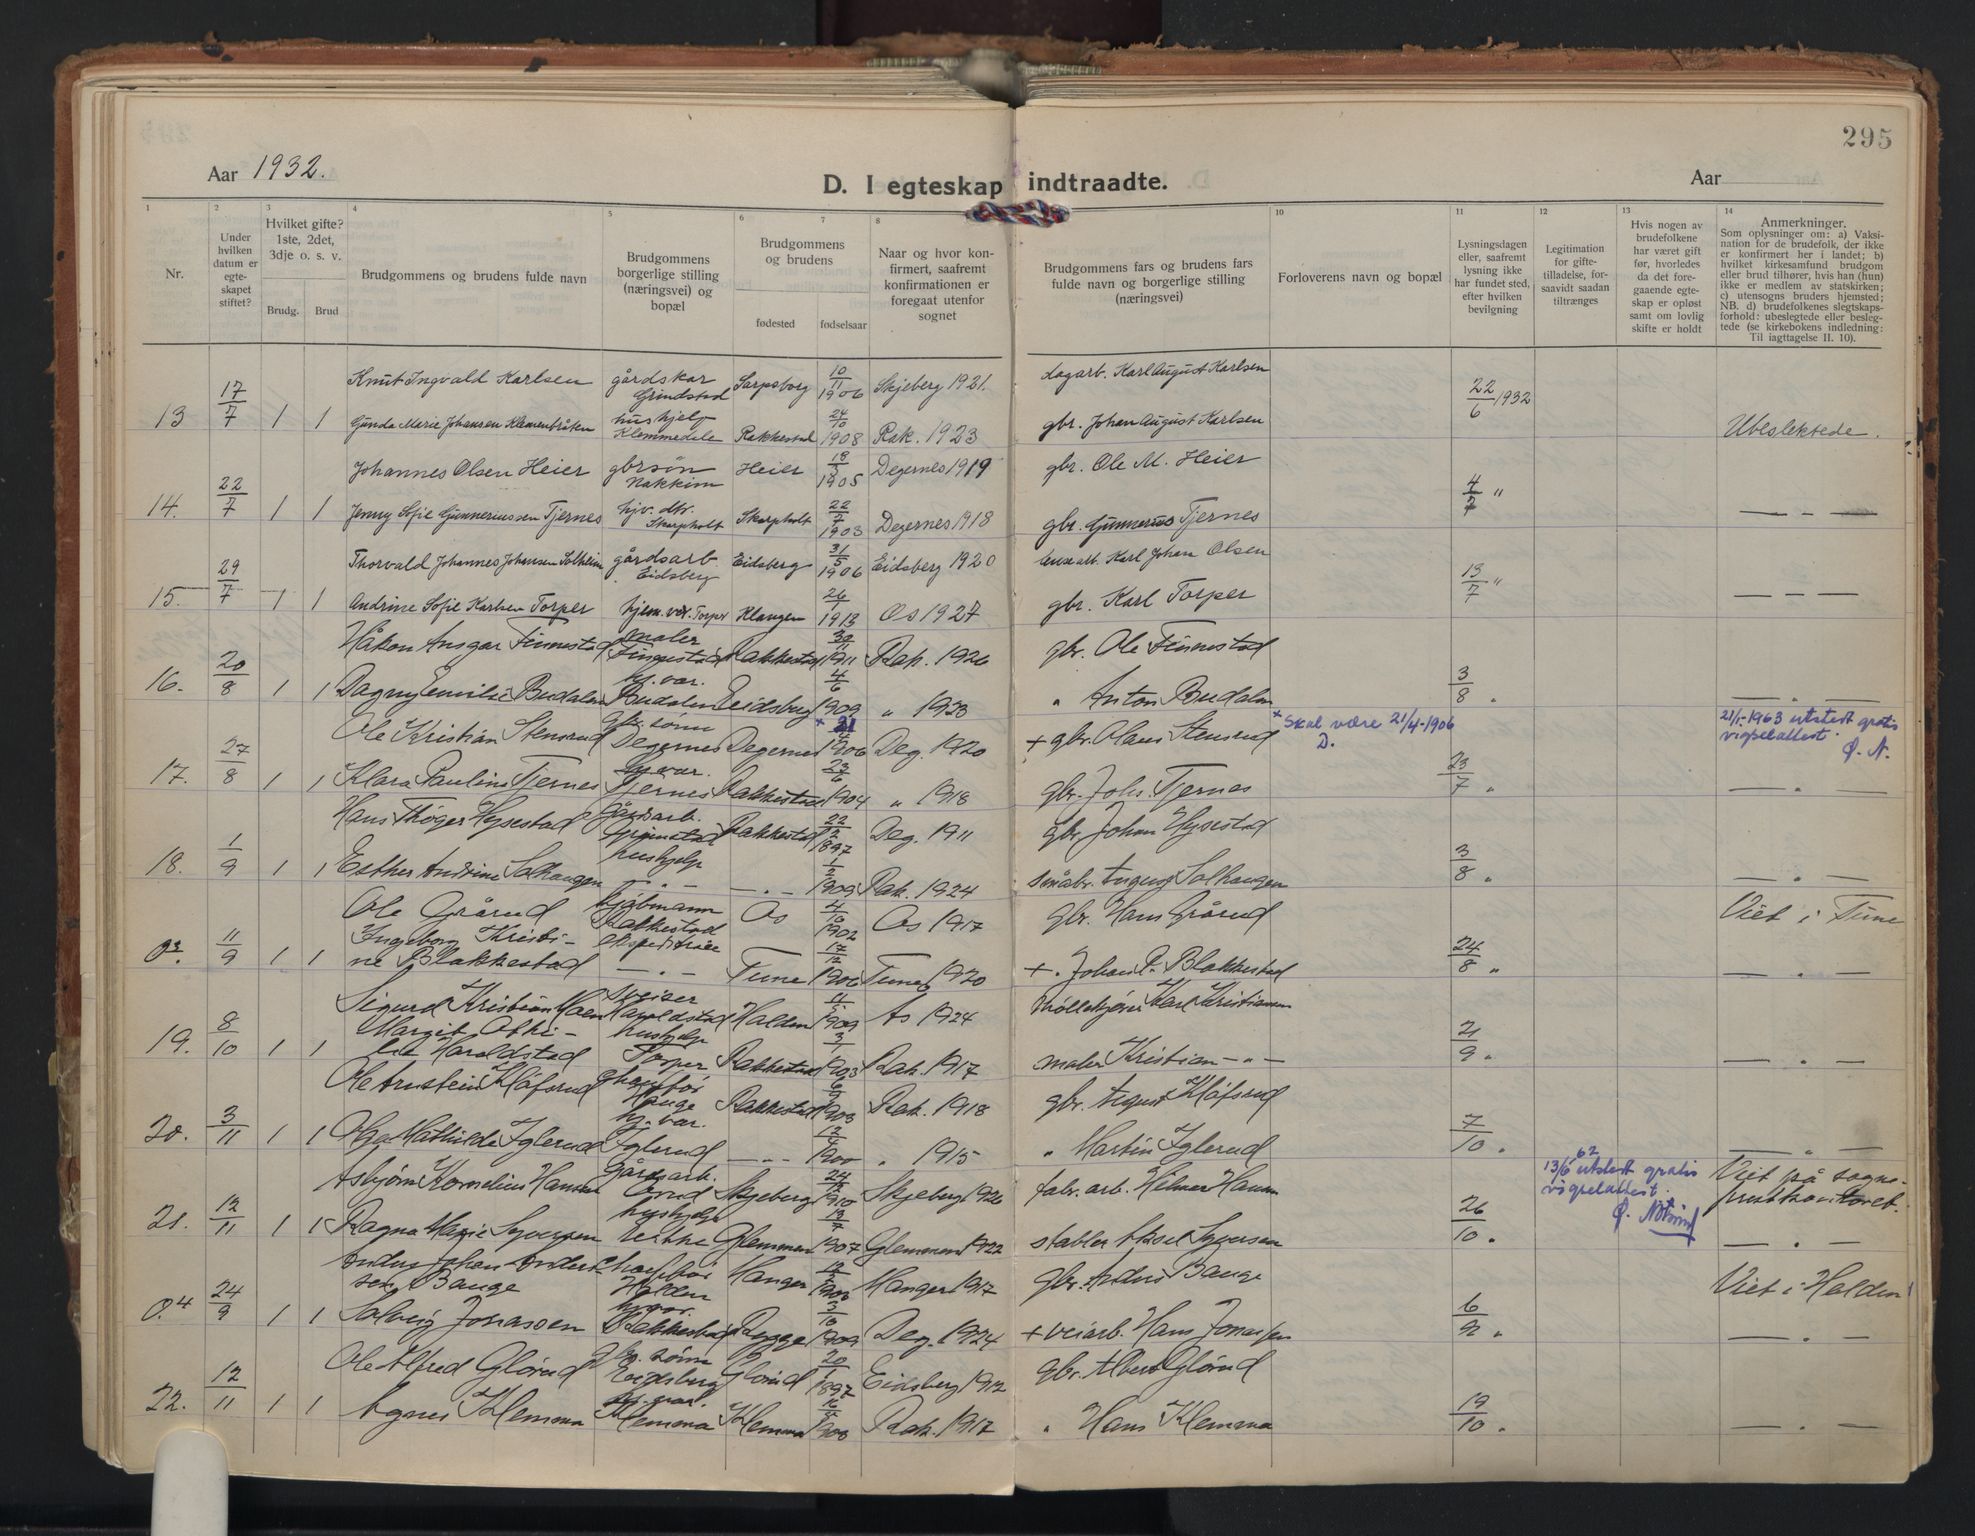 295
Aar 1932.
D. I egteskap indtraadte.
Aar
1
2
3
4
5
6
7
8
10
11
12
13
14
Nr.
Under hvilken datum er egte-skapet stiftet?
Hvilket gifte? 1ste, 2det, 3dje o. s. v.
Brudg.
Brud
Brudgommens og brudens fulde navn
Brudgommens borgerlige stilling (næringsvei) og bopæl
Brudgommens og brudens
fødested
fødselsaar
Naar og hvor kon-firmert, saafremt konfirmationen er foregaat utenfor sognet
Brudgommens fars og brudens fars fulde navn og borgerlige stilling (næringsvei)
Forloverens navn og bopæl
Lysningsdagen eller, saafremt lysning ikke har fundet sted, efter hvilken bevilgning
Legitimation for gifte-tilladelse, for-saavidt saadan tiltrænges
Hvis nogen av brudefolkene har været gift før, hvorledes da det fore-gaaende egte-skap er opløst samt om lovlig skifte er holdt
Anmerkninger.
Som oplysninger om: a) Vaksi-nation for de brudefolk, der ikke er konfirmert her i landet; b) hvilket kirkesamfund brudgom eller brud tilhører, hvis han (hun) ikke er medlem av statskirken; c) utensogns bruders hjemsted; NB. d) brudefolkenes slegtskaps-forhold: ubeslegtede eller besleg-tede (se kirkebokens indledning: Til iagttagelse II. 10).
Knut Ingvald Karlsen gårdskar Grindstad Sarpsborg 10/11 1906 Skjeberg 1921. dagarb. Karl August Karlsen
13 17/7 1 1 Gunda Marie Johansen Klemenbråten hushjelp Klemmedale Rakkestad 24/10 1908 Rak. 1923 gbr. Johan August Karlsen 22/6 1932 Ubeslektede.
Johannes Olsen Heier gbrsøn Nakkim Heier 18/5 1905 Degernes 1919 gbr. Ole M. Heier
14. 22/7 1 1 Jenny Sofie Gunneriussen Tjernes hjv. dtr. Skarpholt Skarpholt 22/7 1903 Degernes 1918 gbr. Gunnerius Tjernes 4/7 " — — —
Thorvald Johannes Johansen Solheim gårdsarb. Eidsberg Eidsberg 31/5 1906 Eidsberg 1920 Karl Johan Olsen
15. 29/7 1 1 Andrine Sofie Karlsen Torper hjem. vær. Torper Klangen 26/1 1913 Os 1927 gbr. Karl Torper 13/7 " — — —
Håkon Ansgar Finnestad maler Finnestad Rakkestad 30/11 1911 Rak. 1926 gbr. Ole Finnestad
16. 20/8 1 1 Dagny Emilie Budalen hj. vær. Budalen Eidsberg 4/6 1909 " 1923 " Anton Budalen 3/8 " — " —
Ole Kristian Stensrud gbr. sønn Degernes Degernes × 21/4 1906 Deg. 1920 + gbr. Olaus Stensrud × Skal være 21/4-1906 D. 21/1-1963 utstedt gratis vigselattest. Ø. N.
17. 27/8 1 1 Klara Pauline Tjernes hj. vær. Tjernes Rakkestad 23/6 1904 " 1918 gbr. Johs. Tjernes 23/7 " — " —
Hans Thøger Hysestad Gårdsarb. Grimstad Rakkestad 22/12 1897 Deg. 1911 gbr. Johan Hysestad
18. 1/9 1 1 Esther Andrine Solhaugen hushjelp — " — — " — 1/2 1909 Rak. 1924 småbr. August Solhaugen 3/8 " — " —
Ole Grårud kjøbmann Rakkestad Os 4/10 1902 Os 1917 gbr. Hans Grårud Viet i Tune
0.3 11/9 1 1 Ingeborg Kristi-ne Blakkestad ekspeditrise — " — Tune 17/12 1906 Tune 1920 + . Johan P. Blakkestad 24/8 " — " —
Sigurd Kristian Moen sveiser Haraldstad Halden 1909 Ås 1924 Møllekjører Karl Kristiansen
19. 8/10 1 1 Margit Othi-lie Haraldstad hushjelp Torper Rakkestad 1903 Rak. 1917 maler Kristian — " — 21/9 " — " —
Ole Arnstein Kløfsrud Hauge Rakkestad 1903 Rak. 1918 gbr. August Kløfsrud
20. 3/11 1 1 Olga Mathilde Iglerud hj. vær. Iglerud — " — 12/4 1900 " 1915 " Martin Iglerud 7/10 " — " —
Asbjørn Kornelius Hansen Gårdsarb. Grud Skjeberg 1910 Skjeberg 1926 fabr. arb. Helmer Hansen 13/6 62 utstedt gratis vigselattest. Ø. Viet på sogne-prestkontoret.
21. 12/11 1 1 Ragna Marie Syversen hushjelp Glemmen 1907 Glemmen 1922 stabler Aksel Syversen 26/10 " — " —
Anders Johan Anders-sen Bauge Halden Manger 1903 Manger 1917 gbr. Anders Bauge Viet i Halden
0.4 24/9 1 1 Solveig Jonassen hj. vær. Rakkestad Rygge 3/10 1909 Deg. 1924 + veiarb. Hans Jonassen 6/9 " — " —
Ole Alfred Glørud gbr. sønn Eidsberg Glørud 20/1 1897 Eidsberg 1912 gbr. Albert Glørud
22. 12/11 1 1 Agnes Klemma Klemma Klemma 1903 Rak. 1917 " Hans Klemma 19/10 " — " —